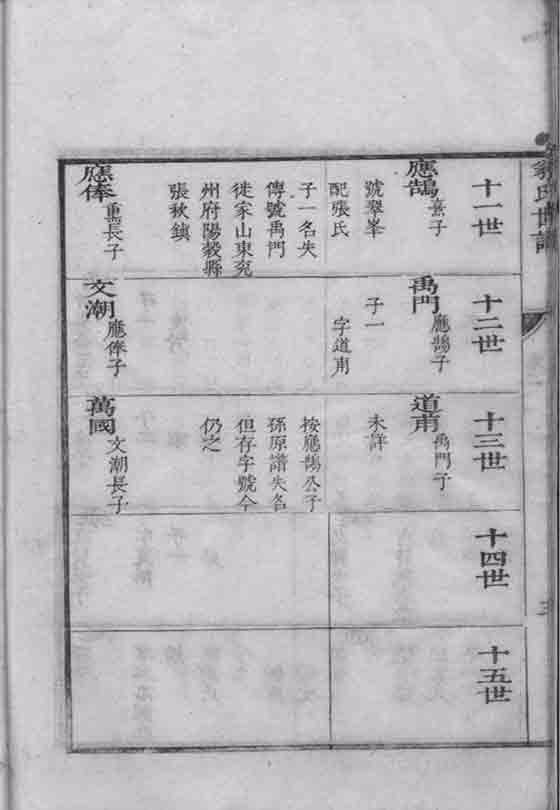 氏世譜
十一世
應鵠
熹子
號翠峯
配張氏
子一名失
傳號禹門
徙家山東兖
州府陽穀縣
張秋鎮
應俸
熏長子
十二世
禹門
應鵠子
子一
字道甫
文潮
應俸子
十三世
道甫
禹門子
未詳
按應鵠公子
孫原譜失名
但存字號今
仍之
萬國
文潮長子
十四世
十五世